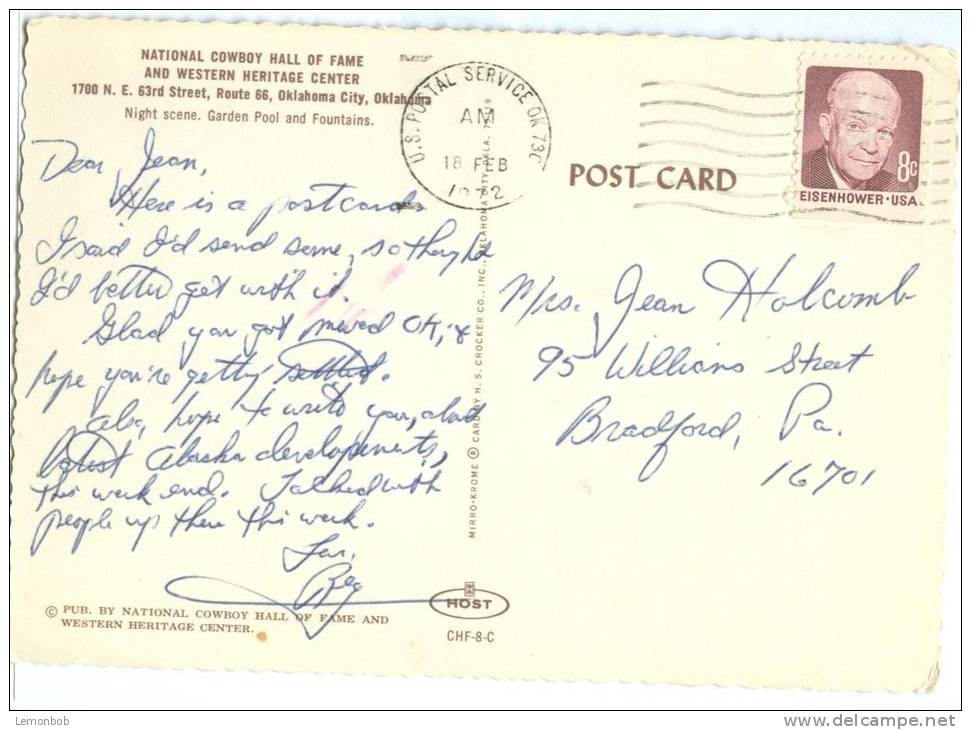 NATIONAL COWBOY HALL OF FAME
AND WESTERN HERITAGE CENTER
1700 N. E. 63rd Street, Route 66, Oklahoma City, Oklahoma
Night scene. Garden Pool and Fountains.
Dear Jean,
Here is a postcard.
I said I'd send some, so
I'd better get with it.
Glad you got moved OK, &
hope you're getting settled.
Also, hope to write you, about
latest Alaska developments,
this week end. Talked with
people up there this week.
© PUB. BY NATIONAL COWBOY HALL OF FAME AND
WESTERN HERITAGE CENTER.
U.S. POSTAL SERVICE OK 730
AM
18 FEB
1972
MIRRO-KROME ® CARD BY H. S. CROCKER CO., INC., OKLAHOMA CITY, OKLA.
HOST
CHF-8-C
POST CARD
8c
EISENHOWER·USA
Mrs. Jean Holcomb
95 Williams Street
Bradford, Pa.
16701
Lemonbob
www.delcampe.net